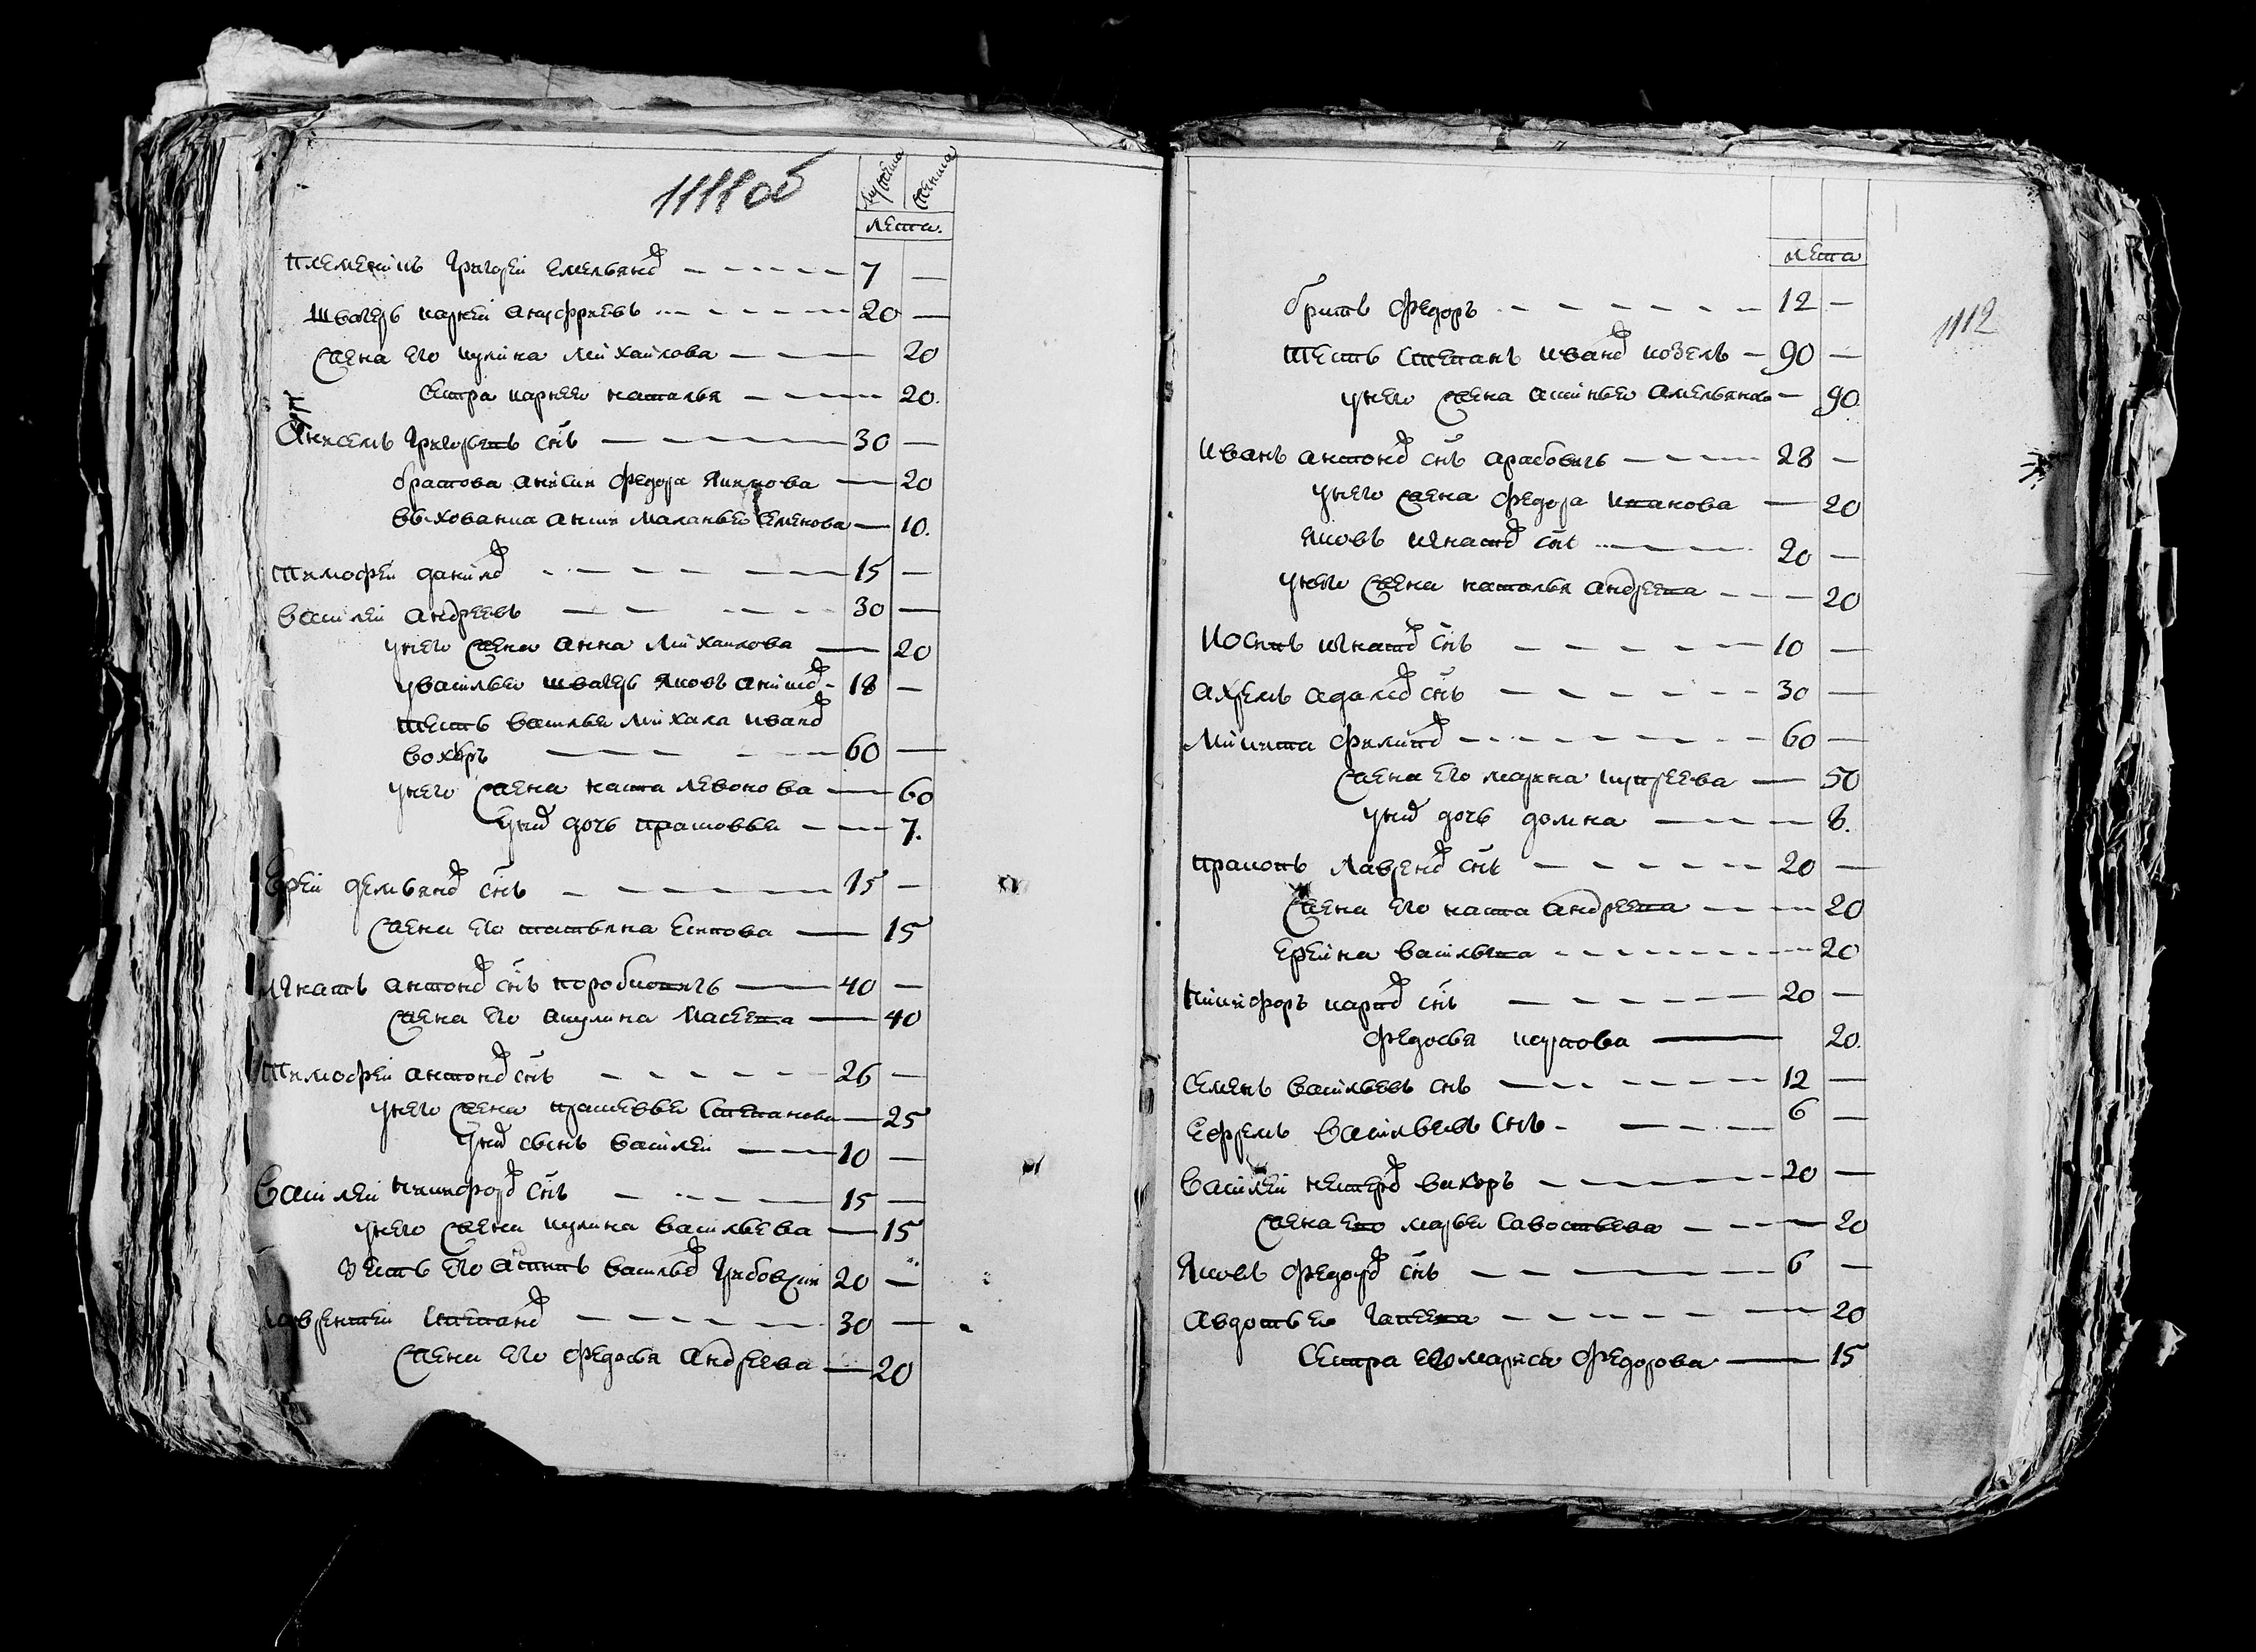 1111 об
мужеска женска
лета.
племенникъ Григорей Емельяновъ 7 —
швагеръ карней ануфриевъ 20 —
жена его кулина михайлова — 20
сестра карнеева наталья — 20.
Анисемъ Григорьевъ снъ 30 —
братова анисия федора якимова — 20
выхованка аниси маланья семенова — 10.
тимофей данилов 15 —
василей андреевъ 30 —
у него жена анна михайлова — 20
у василья швагеръ яковъ 18 —
тесть василья михаила иванов
вохоръ 60 —
у него жена наста левонова — 60
у них дочь прасковья — 7.
демьянов снъ 15 —
жена его татьяна есипова — 15
игнатъ антонов снъ коробкович 40 —
жена его акулина — 40
тимофей антонов снъ 26 —
у него жена прасковья степанова — 25
у них сынъ василей 10 —
василей никифоров снъ 15 —
у него жена кулина васильева — 15
зять его осипъ васильев 20 —
лаврентей степанов 30 —
жена его федосья андреева — 20
1112
лета
братъ федоръ 12 —
тесть степанъ иванов козелъ 90 —
у него жена амельянова — 90
иванъ антонов снъ 28 —
у него жена федора — 20
яковъ игнатов снъ 20 —
у него жена наталья андреева — 20
игнатов снъ 10 —
ахремъ адамов снъ 30 —
микита филипов 60 —
жена его марина — 50
у них дочь домна — 8.
прокопъ лавренов снъ 20 —
жена его наста андреева — 20
васильева — 20
никифоръ карпов снъ 20 —
федосья — 20.
семенъ васильевъ снъ 12 —
ефремъ васильевъ снъ 6 —
василей нестеров вихоръ 20 —
жена его марья савостьева — 20
яковъ федоров снъ 6 —
авдотья — 20
сестра его федорова — 15